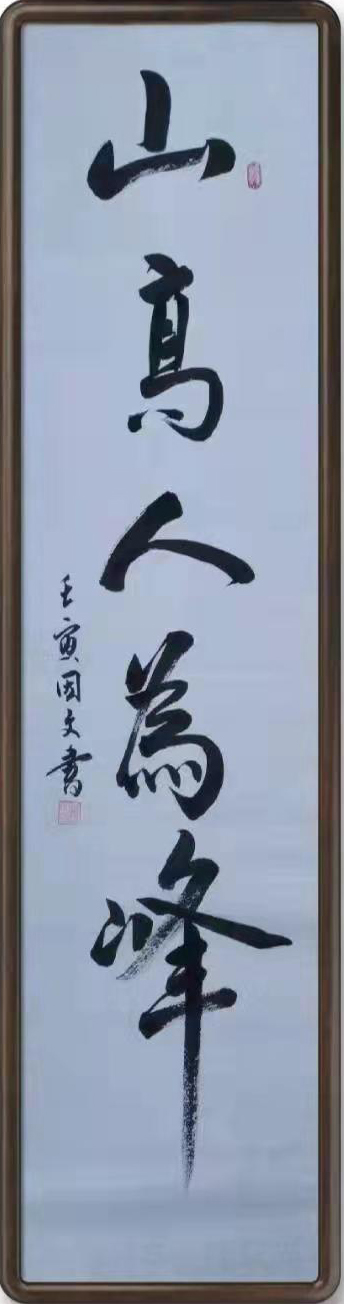 山高人為峰
壬寅国文書